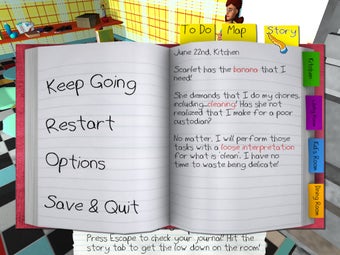 To Do
Map
Story
Keep Going
Restart
Options
Save & Quit
June 22nd, Kitchen
Scarlet has the banana that I
need!
She demands that I do my chores,
including...cleaning! Has she not
realized that I make for a poor
custodian?
No matter, I will perform those
tasks with a loose interpretation
for what is 'clean'. I have no
time to waste being delicate!
Kitchen
Kid's Room
Dining Room
Press Escape to check your journal! Hit the
story tab to get the low down on the room!